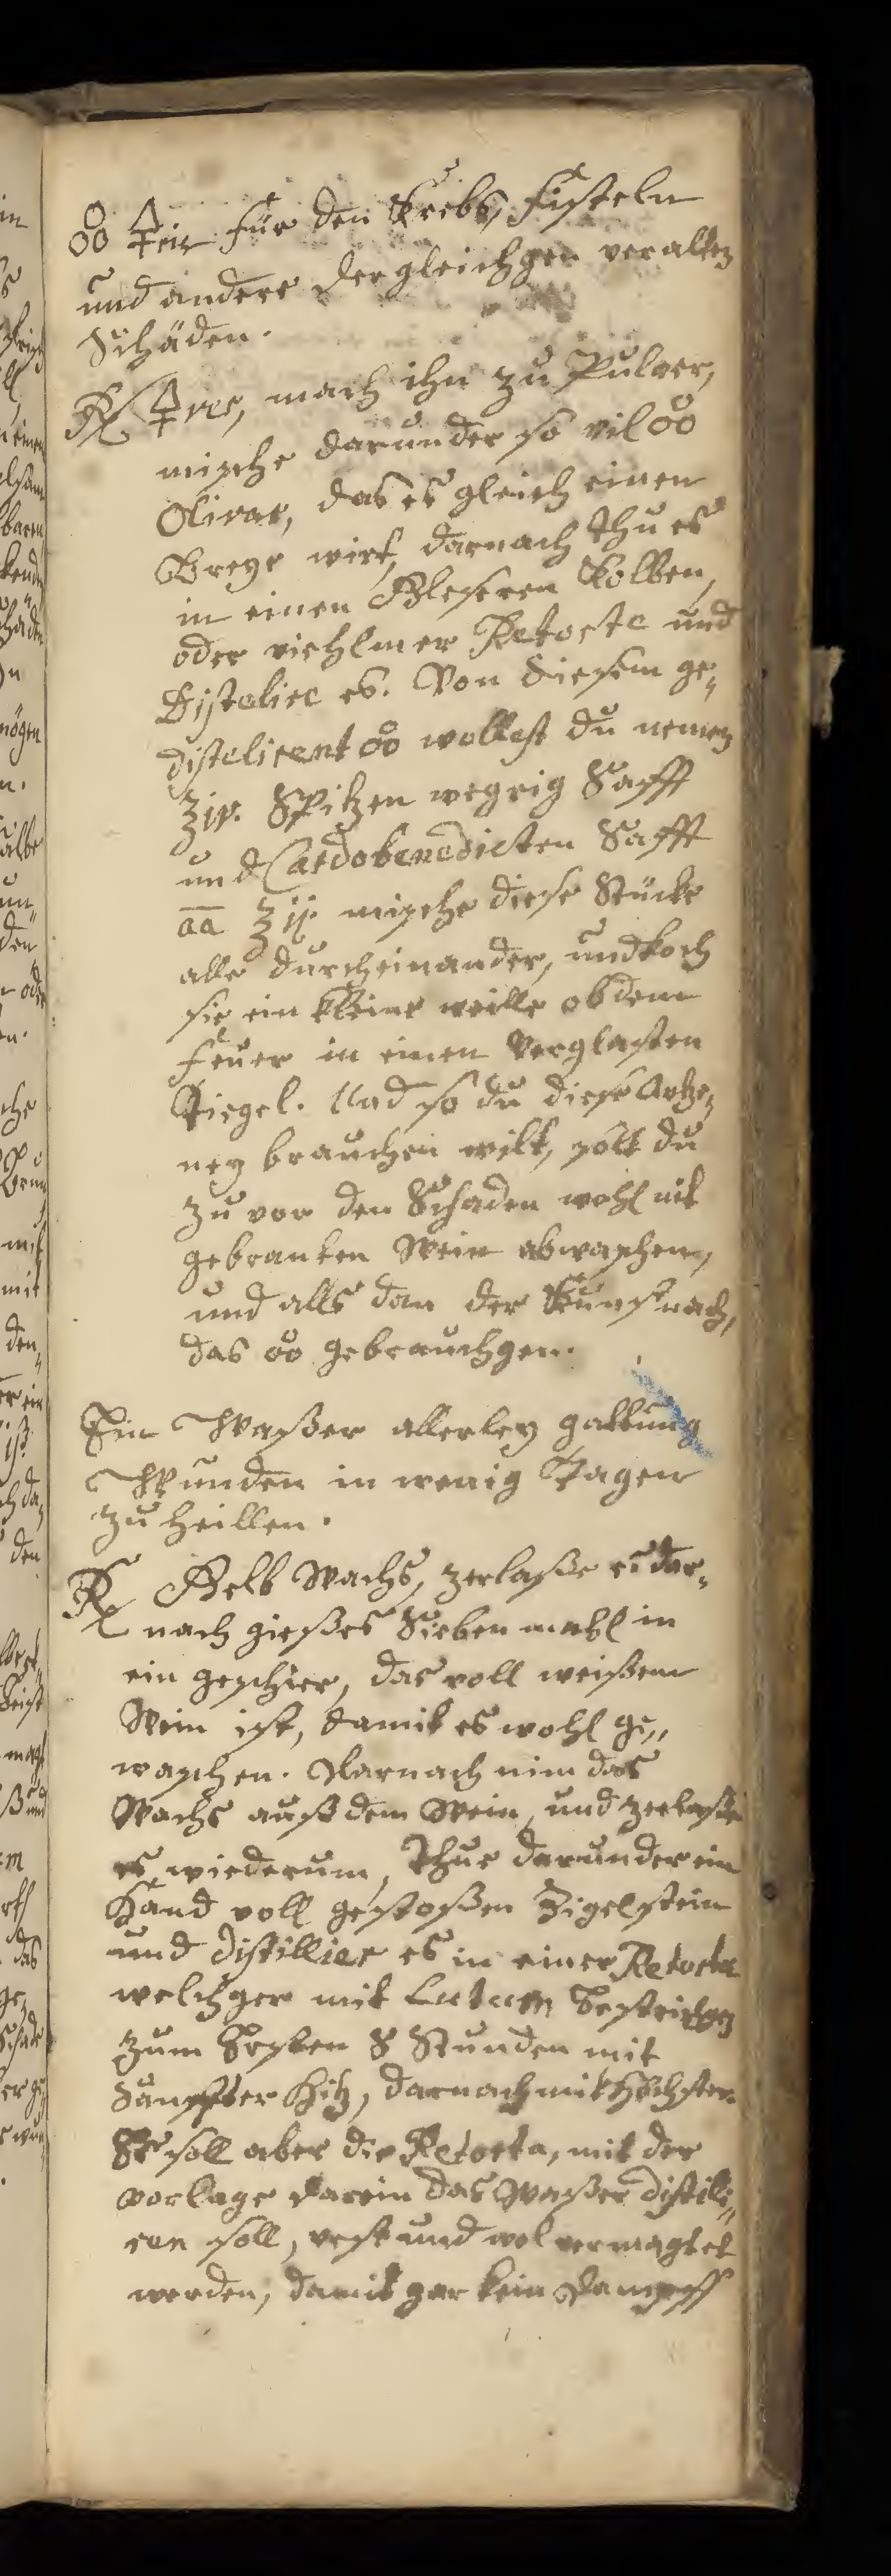 🜆 🜍ris für den Krebs, Fisteln
und andere dergleichgen veralten
Schäden.
℞ 🜍rec, mach ihn zu Pulver,
mische darunder so vil
Olivar, das es gleich einen
Breye wirt, darnach thu es
in einen Gleseren Kolben,
oder viehlmer Retorte und
Distelire es. Von diesem ge„
distelirent wollest du nemen
ʒiv. Spitzen wegrig Safft
und Cardobenedicten Safft
āā ʒij. mische diese Stücke
alle durcheinander, und koch
sie ein kleine weille ob dem
Feuer in einen Verglasten
Tiegel. Und so du diese Artze„
ney brauchen wilt, solt du
zu vor den Schaden wohl mit
gebranten Wein abwaschen,
und alls dan der Kunst nach,
das gebrauchgen.
Ein Waßer allerley gattung
Wunden in wenig Tagen
zu heillen.
℞ Gelb Wachs, zerlaße es dar„
nach gieß es Sieben mahl in
ein geschier, das voll weißem
Wein ist, damit es wohl ge„
waschen. Darnach nim das
Wachs auß dem Wein, und zerlaße
es wiederum, Thue darunder ein
Hand voll gestoßen Zigelstein
und distillier es in einer Retorta
welchger mit Lutum bestrichgen
zum Ersten 8 Stunden mit
Sanffter Hitz, darnach mit höchster.
Es soll aber die Retorta, mit der
vorlage darein das Waßer distili„
ren soll, vest und wol vermacht
werden, damit gar kein Dampff